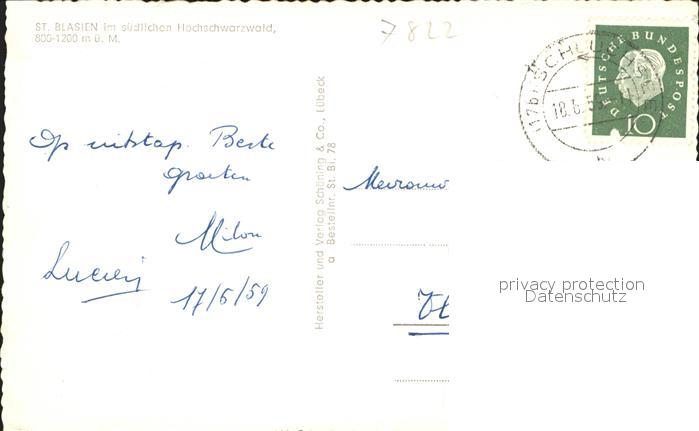 ST. BLASIEN im südlichen Hochschwarzwald,
800-1200 m ü. M.
7822
Op uitstap. Beste
groeten
Milou
Lucien
17/6/59
Hersteller und Verlag Schöning & Co., Lübeck
a Bestellnr. St. Bl. 78
(17b) SCHLUCHS
18.6.5
DEUTSCHE BUNDESPOST
10
privacy protection
Datenschutz